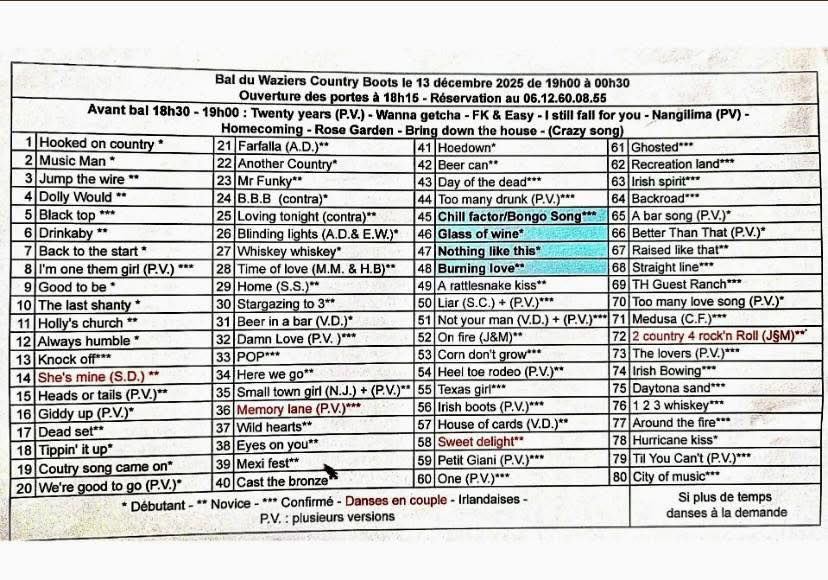 Bal du Waziers Country Boots le 13 décembre 2025 de 19h00 à 00h30
Ouverture des portes à 18h15 - Réservation au 06.12.60.08.55
Avant bal 18h30 - 19h00 : Twenty years (P.V.) - Wanna getcha - FK & Easy - I still fall for you - Nangilima (PV) -
Homecoming - Rose Garden - Bring down the house - (Crazy song)
1 Hooked on country *
2 Music Man *
3 Jump the wire **
4 Dolly Would **
5 Black top ***
6 Drinkaby **
7 Back to the start *
8 I'm one them girl (P.V.) ***
9 Good to be *
10 The last shanty *
11 Holly's church **
12 Always humble *
13 Knock off***
14 She's mine (S.D.) **
15 Heads or tails (P.V.)**
16 Giddy up (P.V.)*
17 Dead set**
18 Tippin' it up*
19 Coutry song came on*
20 We're good to go (P.V.)*
21 Farfalla (A.D.)**
22 Another Country*
23 Mr Funky**
24 B.B.B (contra)*
25 Loving tonight (contra)**
26 Blinding lights (A.D.& E.W.)*
27 Whiskey whiskey*
28 Time of love (M.M. & H.B)**
29 Home (S.S.)**
30 Stargazing to 3**
31 Beer in a bar (V.D.)*
32 Damn Love (P.V. )***
33 POP***
34 Here we go**
35 Small town girl (N.J.) + (P.V.)**
36 Memory lane (P.V.)***
37 Wild hearts**
38 Eyes on you**
39 Mexi fest**
40 Cast the bronze**
41 Hoedown*
42 Beer can**
43 Day of the dead***
44 Too many drunk (P.V.)***
45 Chill factor/Bongo Song***
46 Glass of wine*
47 Nothing like this*
48 Burning love**
49 A rattlesnake kiss**
50 Liar (S.C.) + (P.V.)***
51 Not your man (V.D.) + (P.V.)***
52 On fire (J&M)**
53 Corn don't grow***
54 Heel toe rodeo (P.V.)**
55 Texas girl***
56 Irish boots (P.V.)***
57 House of cards (V.D.)**
58 Sweet delight**
59 Petit Giani (P.V.)***
60 One (P.V.)***
61 Ghosted***
62 Recreation land***
63 Irish spirit***
64 Backroad***
65 A bar song (P.V.)*
66 Better Than That (P.V.)*
67 Raised like that**
68 Straight line***
69 TH Guest Ranch***
70 Too many love song (P.V.)*
71 Medusa (C.F.)***
72 2 country 4 rock'n Roll (J§M)**
73 The lovers (P.V.)***
74 Irish Bowing***
75 Daytona sand***
76 1 2 3 whiskey***
77 Around the fire***
78 Hurricane kiss*
79 Til You Can't (P.V.)***
80 City of music***
* Débutant - ** Novice - *** Confirmé - Danses en couple - Irlandaises -
P.V. : plusieurs versions
Si plus de temps
danses à la demande